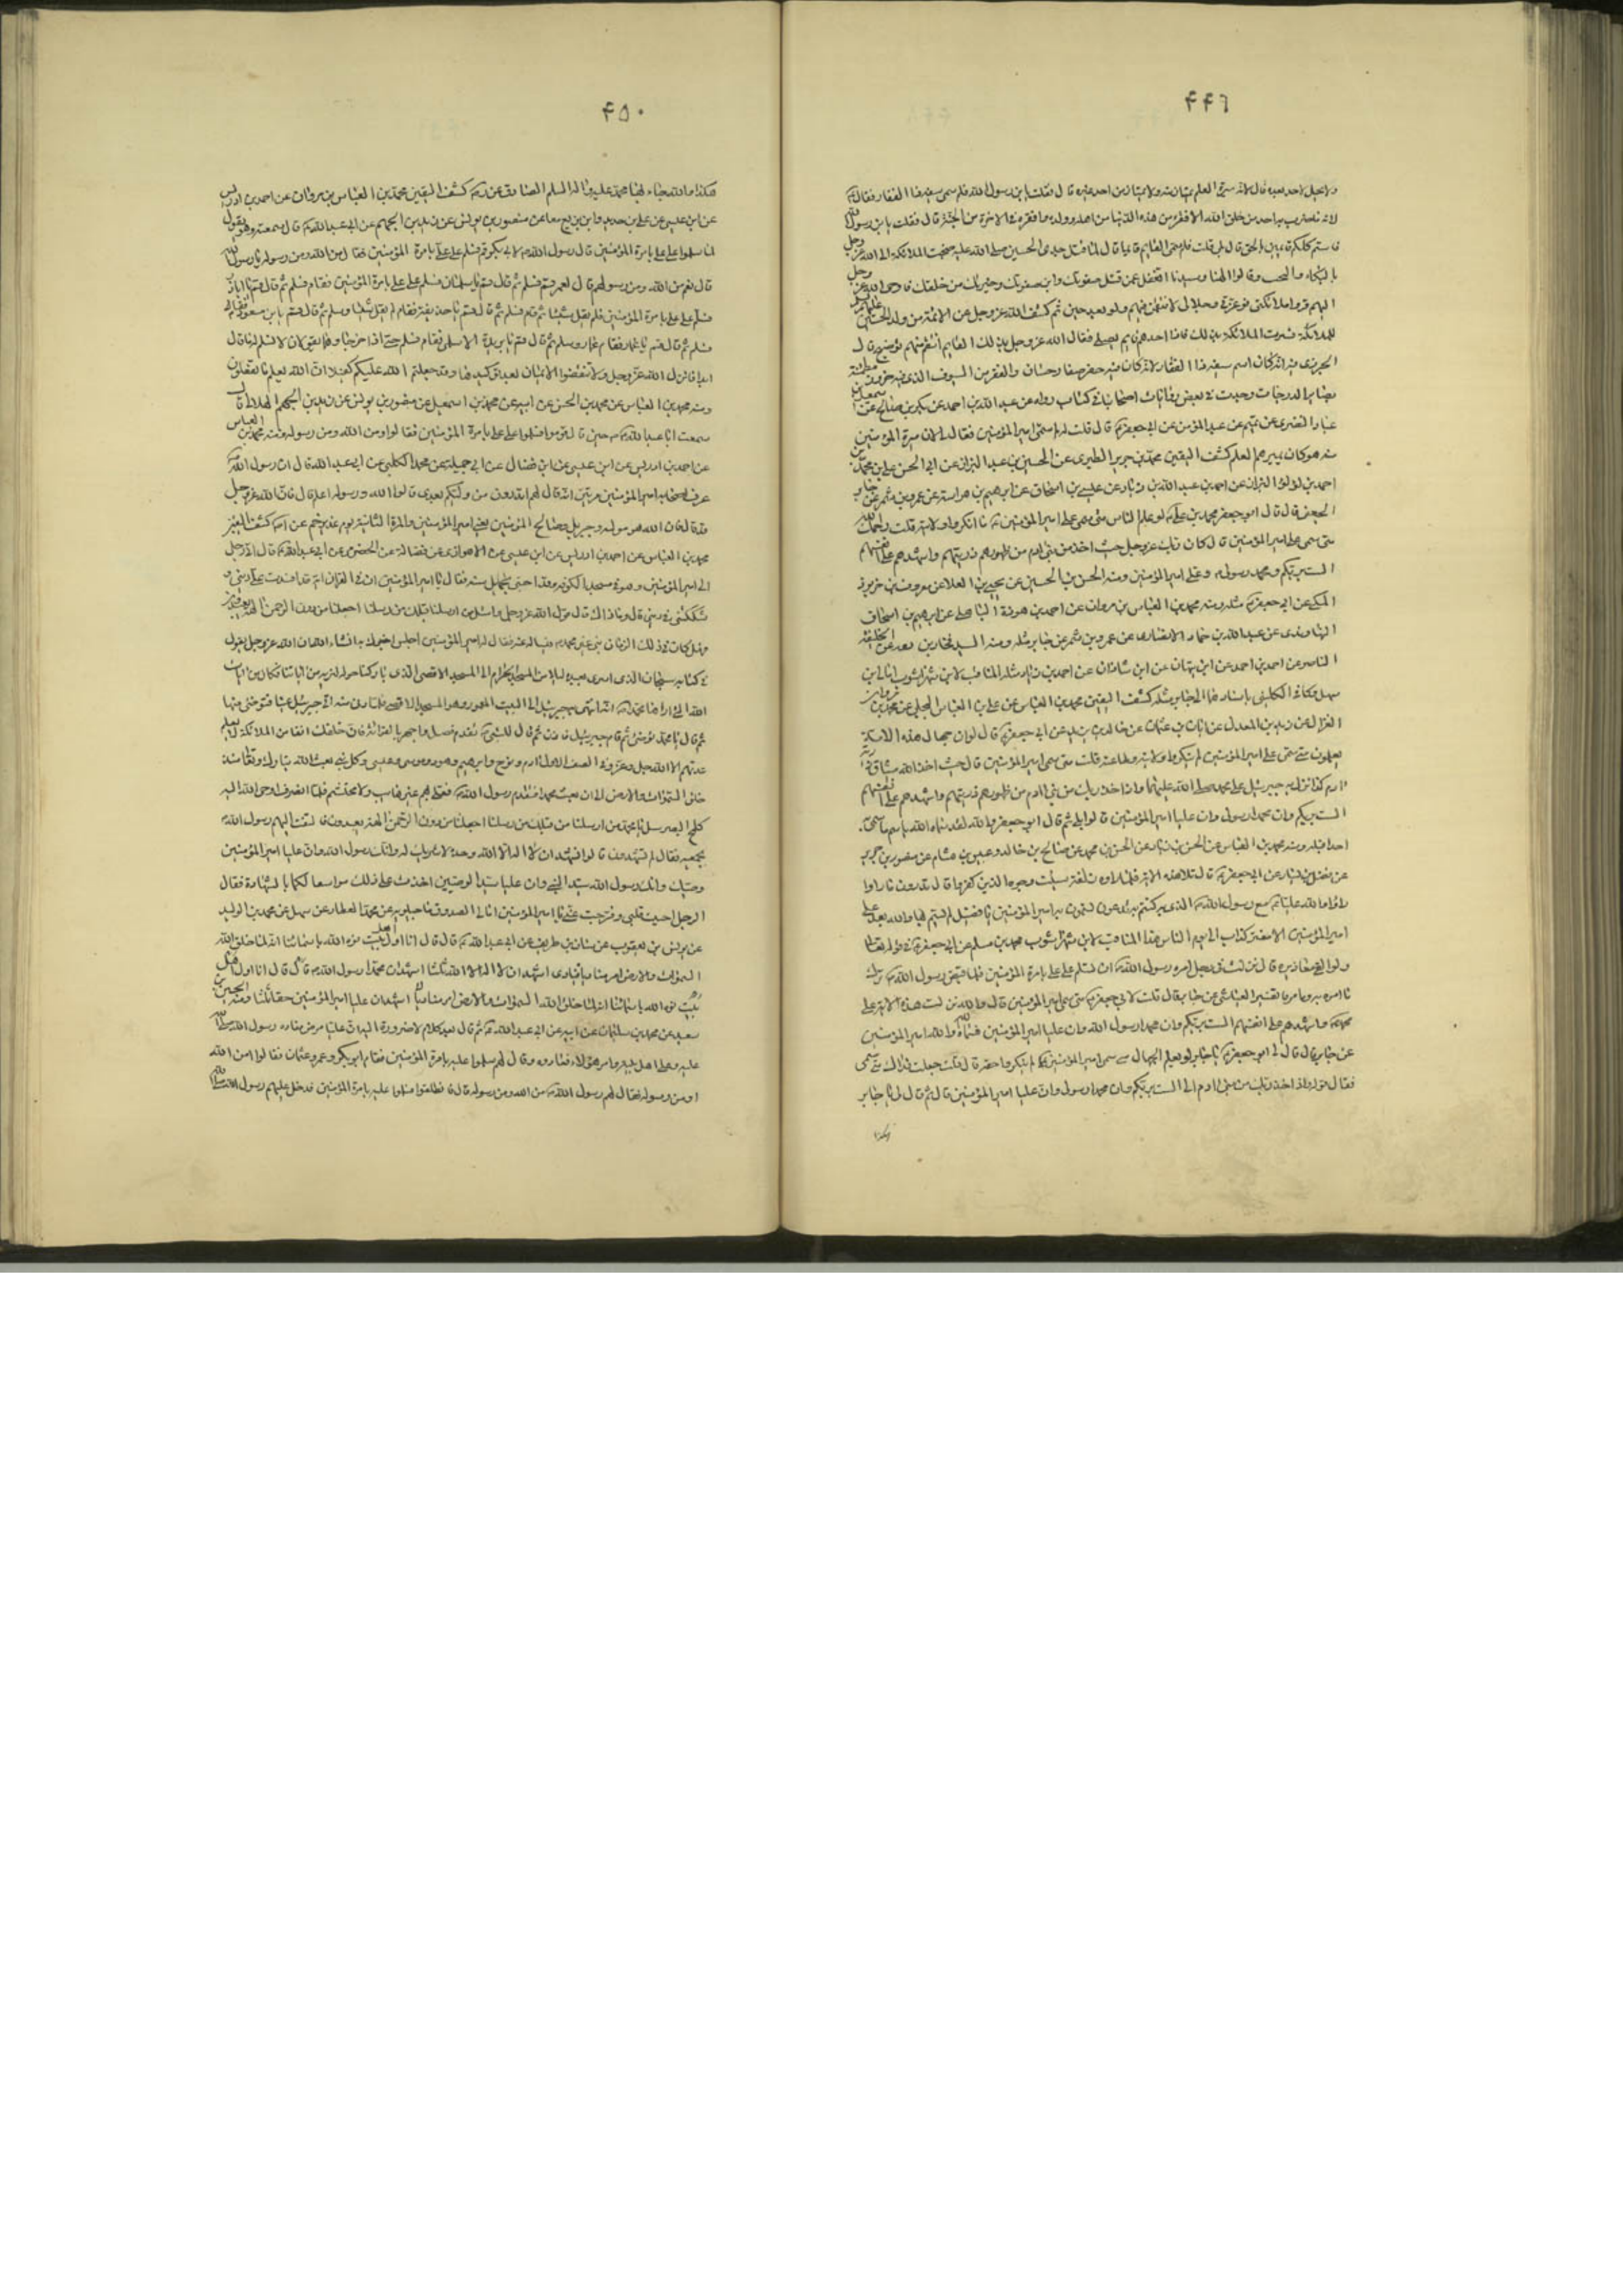 ٤٤٩
ولا يحل لاحد بعده قال لانه ميرة العلم يمتار منه ولا يمتار من احد غيره قال فقلت يابن رسول الله فلم سمي سيفه ذا الفقار فقال
لانه ما ضرب به احد من خلق الله الا افقره من هذه الدنيا من اهله وولده وافقره في الاخرة من الجنة قال فقلت يابن رسول الله
فلستم كلكم قائمين بالحق قال بلى قلت فلم سمي القائم قائما قال لما قتل جدي الحسين صلى الله عليه ضجت الملائكة الى الله عز وجل
بالبكاء والنحيب وقالوا الهنا وسيدنا اتغفل عمن قتل صفوتك وابن صفوتك وخيرتك من خلقك فاوحى الله عز وجل
اليهم قروا ملائكتي فوعزتي وجلالي لانتقمن منهم ولو بعد حين ثم كشف الله عز وجل عن الائمة من ولد الحسين
للملائكة فسرت الملائكة بذلك فاذا احدهم قائم يصلي فقال الله عز وجل بذلك القائم انتقم منهم
كان اسم سيفه ذا الفقار لانه كان فيه حفر صغار حسان
بصائر الدرجات وجدت في بعض
عن عبد المؤمن عن ابي جعفر قال قلت له لم سمي امير المؤمنين فقال لان ميرة المؤمنين
منه هو كان يميرهم العلم كشف اليقين محمد بن جرير الطبري عن الحسين بن عبد الله البزاز عن ابي الحسن علي بن محمد
احمد بن لؤلؤ البزاز عن احمد بن عبد الله بن زياد عن عيسى بن اسحاق عن ابراهيم بن هراسة عن عمرو بن شمر عن جابر
الجعفي قال قال ابو جعفر محمد بن علي لو علم الناس متى سمي علي امير المؤمنين ما انكروا ولايته قلت رحمك الله
متى سمي علي امير المؤمنين قال كان ربك عز وجل حيث اخذ من بني ادم من ظهورهم ذريتهم واشهدهم على انفسهم
الست بربكم ومحمد رسولي وعلي امير المؤمنين ومنه الحسن بن الحسين عن يحيى بن العلا عن معروف بن خربوذ
المكي عن ابي جعفر مثله ومنه محمد بن العباس بن مروان عن احمد بن هوذة الباهلي عن ابراهيم بن اسحاق
النهاوندي عن عبد الله بن حماد الانصاري عن عمرو بن شمر عن جابر مثله ومنه السيد فخار بن معد عن الخليفة
الناصر عن احمد بن احمد عن ابن نبهان عن ابن شاذان عن احمد بن زياد مثله المناقب لابن شهراشوب
باسناده الى جابر مثله كشف اليقين محمد بن العباس عن علي بن العباس البجلي عن محمد بن مروان
الغزال عن زيد بن المعدل عن ابان بن عثمان عن خالد بن يزيد عن ابي جعفر قال لو ان جهال هذه الامة
يعلمون متى سمي علي امير المؤمنين لم ينكروا ولايته وطاعته قلت متى سمي امير المؤمنين قال حيث اخذ الله ميثاق ذرية
ادم كذا نزل به جبرئيل على محمد صلى الله عليهما واذ اخذ ربك من بني ادم من ظهورهم ذريتهم واشهدهم على انفسهم
الست بربكم وان محمدا رسولي وان عليا امير المؤمنين قالوا بلى ثم قال ابو جعفر والله لقد سماه الله باسم ما سمى به
احدا قبله ومنه محمد بن العباس عن الحسن بن محمد عن صالح بن خالد وعبيس بن هشام عن منصور بن حريز
عن فضيل بن يسار عن ابي جعفر قال تلا هذه الاية فلما راوه زلفة سيئت وجوه الذين كفروا قال تدرون ما راوا
راوا والله عليا مع رسول الله الذي كنتم به تدعون تسمون به امير المؤمنين يا فضيل لم يتسم بها والله بعد علي
امير المؤمنين الا مفتر كذاب الى يوم الناس هذا المناقب لابن شهراشوب محمد بن مسلم عن ابي جعفر في قوله تعالى
ولو القى معاذيره قال نزلت في رجل امره رسول الله ان يسلم على علي بامرة المؤمنين فلما قبض رسول الله
ما امره به وما مر تفسير العياشي عن جابر قال قلت لابي جعفر متى سمي امير المؤمنين قال والله نزلت هذه الاية على
محمد واشهدهم على انفسهم الست بربكم وان محمدا رسول الله وان عليا امير المؤمنين فسماه والله امير المؤمنين
عن جابر قال قال لي ابو جعفر يا جابر لو يعلم الجهال متى سمي امير المؤمنين علي لم ينكروا حقه قال قلت جعلت فداك متى سمي
فقال قوله واذ اخذ ربك من بني ادم الى الست بربكم وان محمدا رسول وان عليا امير المؤمنين قال ثم قال لي يا جابر
هكذا
٤٥٠
هكذا والله جاء بها محمد كشف اليقين محمد بن العباس بن مروان عن احمد بن ادريس
عن ابن عيسى عن علي بن حديد وابن بزيع معا عن منصور بن يونس عن زيد بن الجهم عن ابي عبد الله قال سمعته وهو يقول
لما سلموا على علي بامرة المؤمنين قال رسول الله لابي بكر قم فسلم على علي بامرة المؤمنين فقال من الله ومن رسوله يا رسول الله
قال نعم من الله ومن رسوله ثم قال لعمر قم فسلم ثم قال قم يا سلمان فسلم على علي بامرة المؤمنين فقام فسلم ثم قال قم يا اباذر
فسلم على علي بامرة المؤمنين فلم يقل شيئا ثم قام فسلم ثم قال قم يا حذيفة فقام لم يقل شيئا وسلم ثم قال قم يابن مسعود فقام
فسلم ثم قال قم يا عمار فقام عمار وسلم ثم قال قم يا بريدة الاسلمي فقام فسلم حتى اذا خرجا وهما يقولان لا نسلم له ما قال
ابدا فانزل الله عز وجل ولا تنقضوا الايمان بعد توكيدها وقد جعلتم الله عليكم كفيلا ان الله يعلم ما تفعلون
ومنه محمد بن العباس عن محمد بن الحسن عن ابيه عن محمد بن اسمعيل عن منصور بن يونس عن زيد بن الجهم الهلالي قال
سمعت ابا عبد الله حين قال قوموا فسلموا على علي بامرة المؤمنين فقالوا من الله ومن رسوله ومنه محمد بن العباس
عن احمد بن ادريس عن ابن عيسى عن ابن فضال عن ابي جميلة عن محمد الحلبي عن ابي عبد الله قال ان رسول الله
عرف اصحابه امير المؤمنين مرتين انه قال لهم اتدرون من وليكم بعدي قالوا الله ورسوله اعلم قال فان الله عز وجل
قد قال فان الله هو مولاه وجبريل وصالح المؤمنين يعني امير المؤمنين والمرة الثانية يوم غدير خم كشف اليقين
محمد بن العباس عن احمد بن ادريس عن ابن عيسى عن الاهوازي عن فضالة عن الحضرمي عن ابي عبد الله قال اتى رجل
الى امير المؤمنين وهو في مسجد الكوفة وقد احتبى بحمائل سيفه فقال يا امير المؤمنين ان في القران اية قد افسدت علي ديني و
شككتني في ديني قال وما ذاك قال قول الله عز وجل واسئل من ارسلنا قبلك من رسلنا اجعلنا من دون الرحمن الهة يعبدون
وهل كان في ذلك الزمان نبي غير محمد فيساله عنه فقال له امير المؤمنين اجلس اخبرك به انشاء الله ان الله عز وجل يقول
في كتابه سبحان الذي اسرى بعبده ليلا من المسجد الحرام الى المسجد الاقصى الذي باركنا حوله لنريه من اياتنا فكان من ايات
الله التي اراها محمدا انه انتهى به جبرئيل الى البيت المعمور وهو المسجد الاقصى فلما دنا منه اتى جبرئيل عينا فتوضى منها
ثم قال يا محمد توضئ ثم قام جبرئيل فاذن ثم قال للنبي تقدم فصل واجهر بالقراءة فان خلفك افقا من الملائكة لا يعلم
عدتهم الا الله جل وعز وفي الصف الاول ادم ونوح وابراهيم وهود وموسى وعيسى وكل نبي بعث الله تبارك وتعالى منذ
خلق السموات والارض الى ان بعث محمدا فتقدم رسول الله فصلى بهم غير هائب ولا محتشم فلما انصرف اوحى الله اليه
كلمح البصر سل يا محمد من ارسلنا من قبلك من رسلنا اجعلنا من دون الرحمن الهة يعبدون فالتفت اليهم رسول الله
بجميعه فقال لم تشهدون قالوا نشهد ان لا اله الا الله وحده لا شريك له وانك رسول الله وان عليا امير المؤمنين
وصيك وانك رسول الله سيد النبيين وان عليا سيد الوصيين اخذت على ذلك مواثيقنا لكما بالشهادة فقال
الرجل احييت قلبي وفرجت عني يا امير المؤمنين امالي الصدوق ماجيلويه عن محمد العطار عن سهل عن محمد بن الوليد
عن يونس بن يعقوب عن سنان بن طريف عن ابي عبد الله قال قال انا اول اهل بيت نوه الله باسمائنا انه لما خلق الله
السموات والارض امر مناديا فنادى اشهد ان لا اله الا الله ثلثا اشهد ان محمدا رسول الله ثلثا
اشهد ان عليا امير المؤمنين حقا ثلثا
سعيد عن محمد بن سليمان عن ابيه عن ابي عبد الله
عليه وعلى اهل بيته
فقام ابو بكر وعمر وعثمان فقالوا امن الله
او من رسوله فقال لهم رسول الله من الله ومن رسوله قال فانطلقوا فسلموا عليه بامرة المؤمنين فدخل عليهم رسول الله